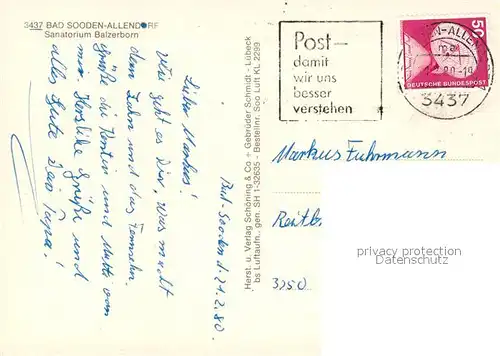 3437 BAD SOODEN-ALLENDORF
Sanatorium Balzerborn
Bad-Sooden d. 21.2.80
Lieber Markus!
Wie geht es Dir, was macht
der Zahn und das Fernsehn.
grüße die und Mutti von
mir Herzliche Grüße und
alles Gute Dein Papa!
Herst. u. Verlag Schöning & Co + Gebrüder Schmidt - Lübeck
SH 1-32635 - Bestellnr. Soo Luft KL 2299
bs Luftaufn., gen.
Post-
damit
wir uns
besser
verstehen
3437
50
DEUTSCHE BUNDESPOST
Markus Fuhrmann
Reitb
3250
privacy protection
Datenschutz